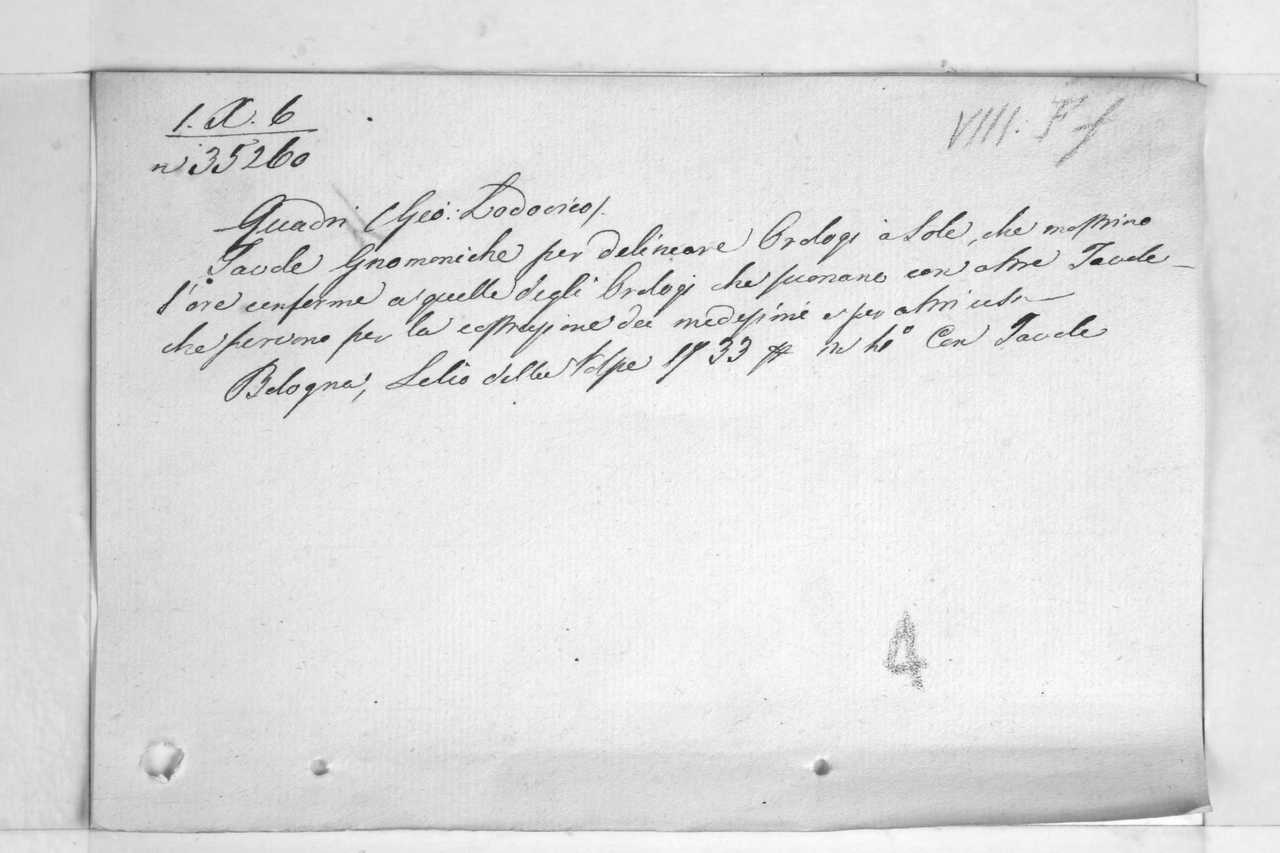 1. X. 6
VIII. F f
n 35260
Quadri (Gio: Lodovico).
Tavole Gnomoniche per delineare Orologj a Sole, che mostrino
l'ore conforme a quelle degli Orologj che suonano con altre Tavole
che servono per la costruzione dei medesimi e per altri usi
Bologna, Lelio della Volpe 1733 in 4º Con Tavole
4